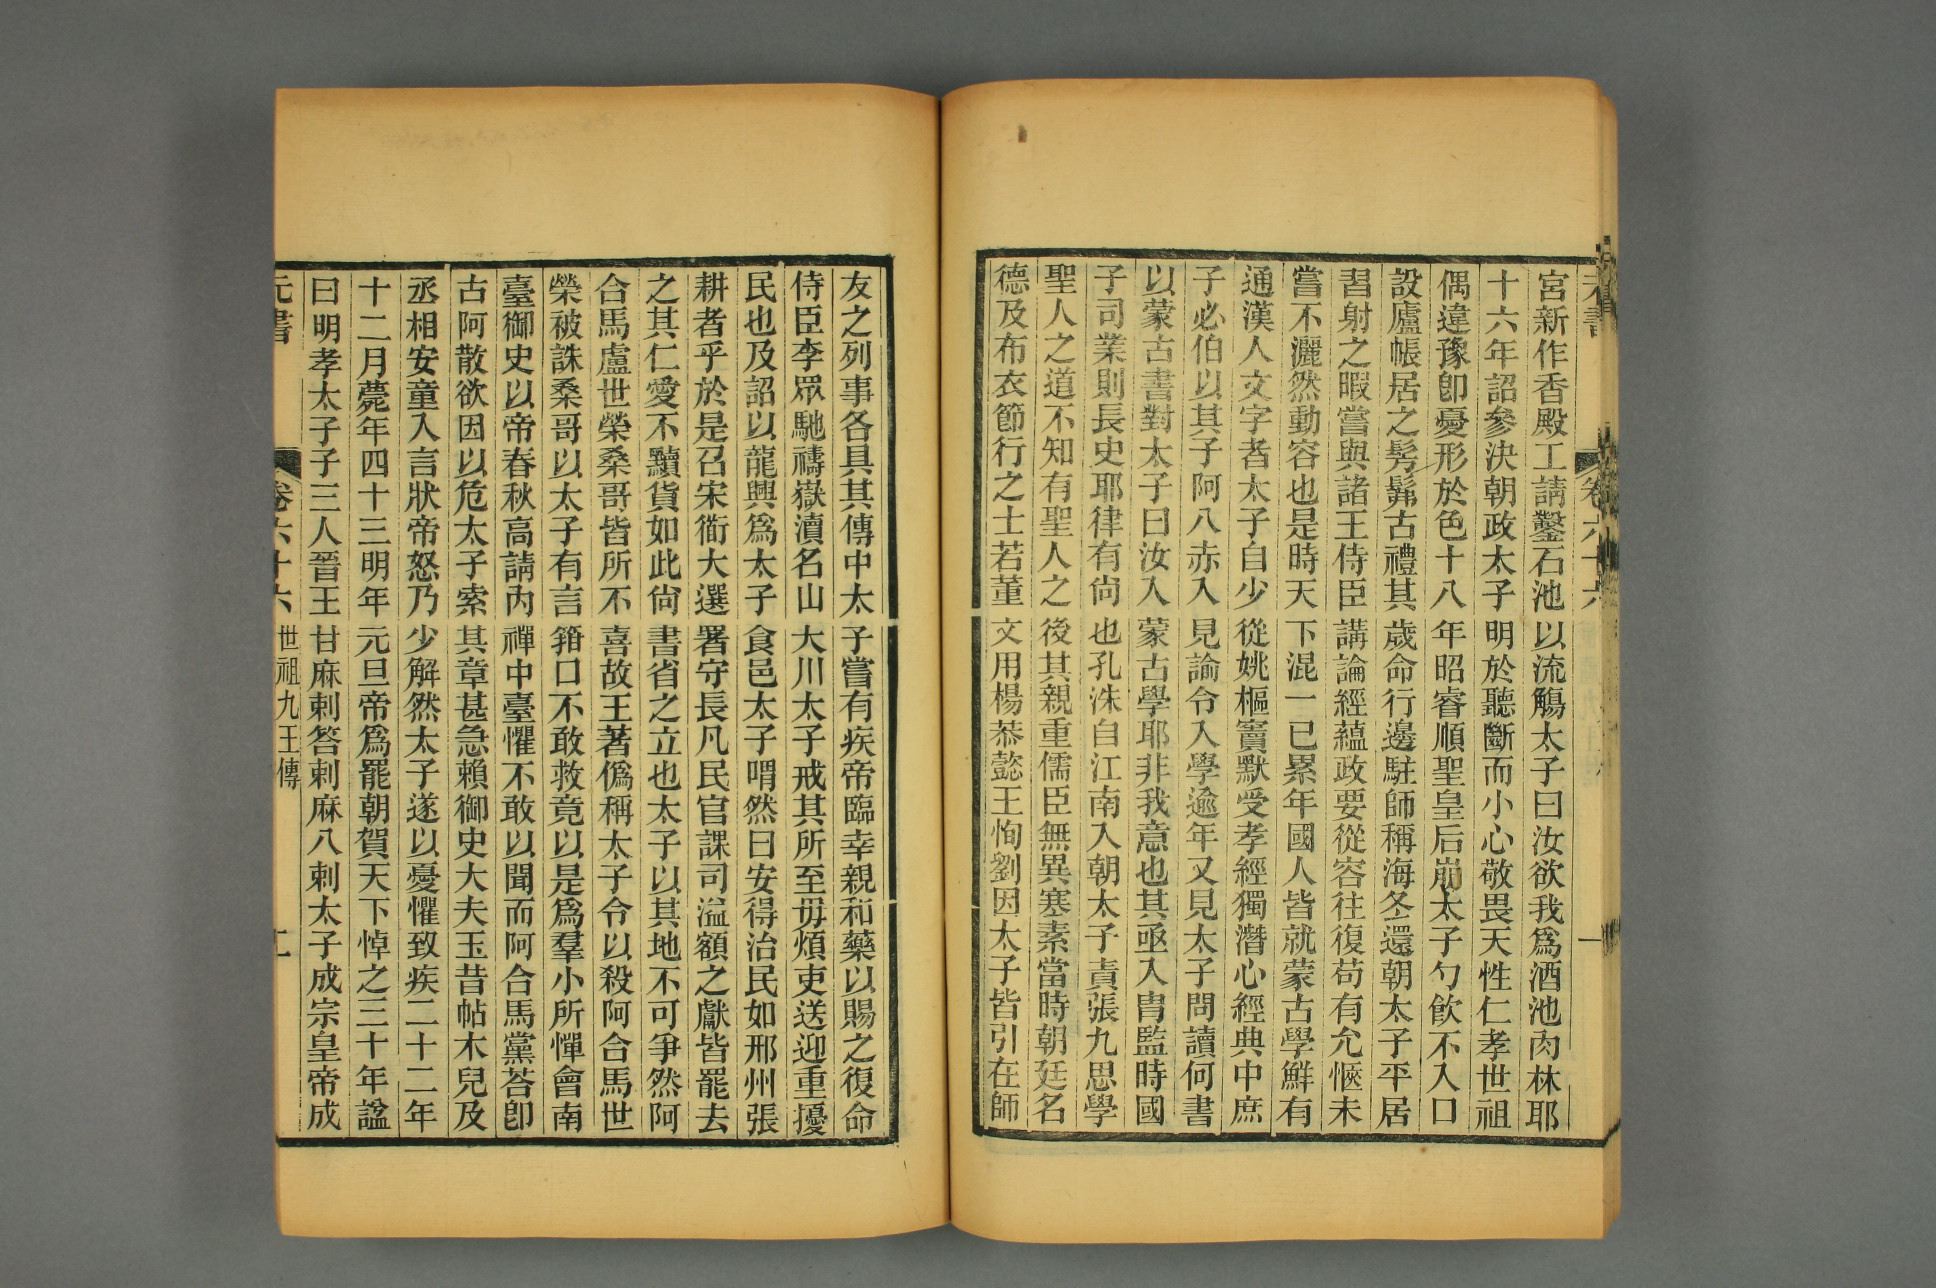 元書
卷六十六
一
宮新作香殿工請鑿石池以流觴太子曰汝欲我爲酒池肉林耶
十六年詔參決朝政太子明於聽斷而小心敬畏天性仁孝世祖
偶違豫卽憂形於色十八年昭睿順聖皇后崩太子勺飮不入口
設廬帳居之髣髴古禮其歲命行邊駐師稱海冬還朝太子平居
習射之暇嘗與諸王侍臣講論經蘊政要從容往復苟有允愜未
嘗不灑然動容也是時天下混一已累年國人皆就蒙古學鮮有
通漢人文字者太子自少從姚樞竇默受孝經獨潛心經典中庶
子必伯以其子阿八赤入見諭令入學逾年又見太子問讀何書
以蒙古書對太子曰汝入蒙古學耶非我意也其亟入胄監時國
子司業則長史耶律有尙也孔洙自江南入朝太子責張九思學
聖人之道不知有聖人之後其親重儒臣無異塞素當時朝廷名
德及布衣節行之士若董文用楊恭懿王恂劉因太子皆引在師
友之列事各具其傳中太子嘗有疾帝臨幸親和藥以賜之復命
侍臣李眾馳禱嶽瀆名山大川太子戒其所至毋煩吏送迎重擾
民也及詔以龍興爲太子食邑太子喟然曰安得治民如邢州張
耕者乎於是召宋衜大選署守長凡民官課司溢額之獻皆罷去
之其仁愛不黷貨如此尙書省之立也太子以其地不可爭然阿
合馬盧世榮桑哥皆所不喜故王著僞稱太子令以殺阿合馬世
榮被誅桑哥以太子有言箝口不敢救竟以是爲羣小所憚會南
臺御史以帝春秋高請內禪中臺懼不敢以聞而阿合馬黨荅卽
古阿散欲因以危太子索其章甚急賴御史大夫玉昔帖木兒及
丞相安童入言狀帝怒乃少解然太子遂以憂懼致疾二十二年
十二月薨年四十三明年元旦帝爲罷朝賀天下悼之三十年諡
曰明孝太子子三人晉王甘麻剌答剌麻八剌太子成宗皇帝成
元書
卷六十六
世祖九王傳